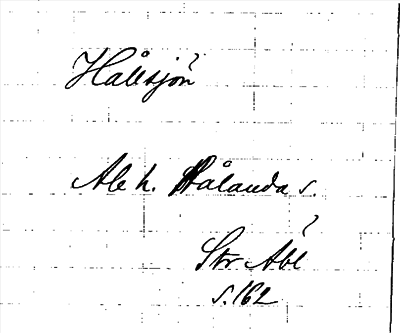 Hållsjön
Ale h. Hålanda s.
Str Åbl
s. 162